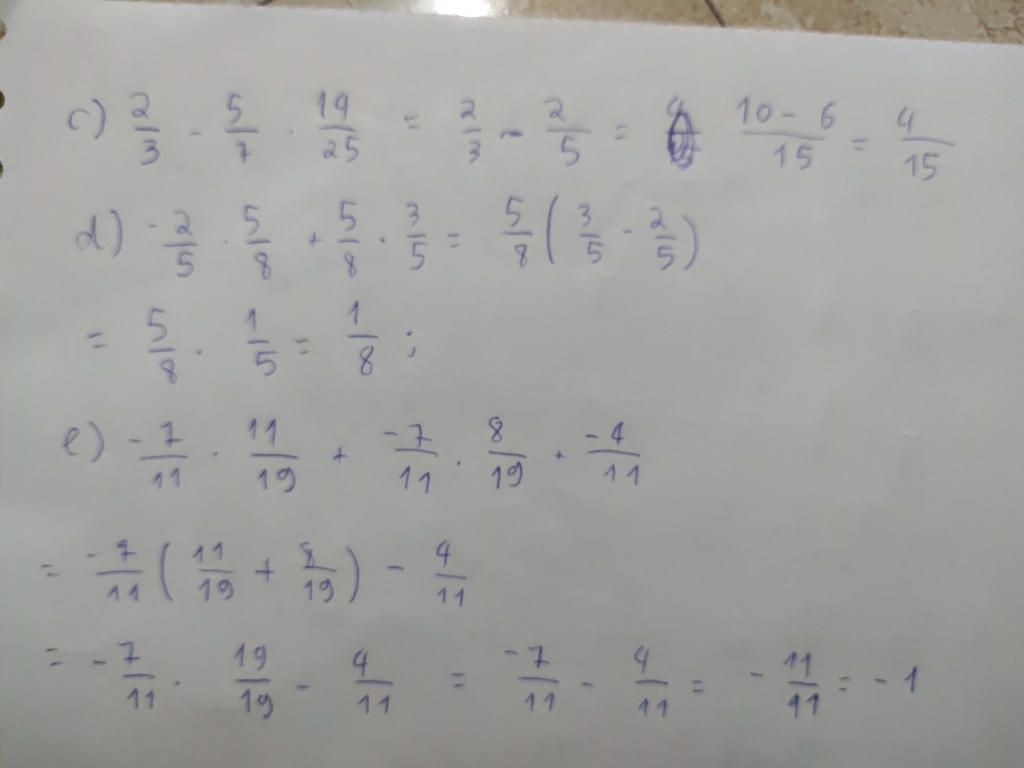 c) 2/3 - 5/7 . 14/25 = 2/3 - 2/5 = 10 - 6/15 = 4/15
d) -2/5 . 5/8 + 5/8 . 3/5 = 5/8 ( 3/5 - 2/5 )
= 5/8 . 1/5 = 1/8 ;
e) -7/11 . 11/19 + -7/11 . 8/19 + -4/11
= -7/11 ( 11/19 + 8/19 ) - 4/11
= -7/11 . 19/19 - 4/11 = -7/11 - 4/11 = - 11/11 = - 1